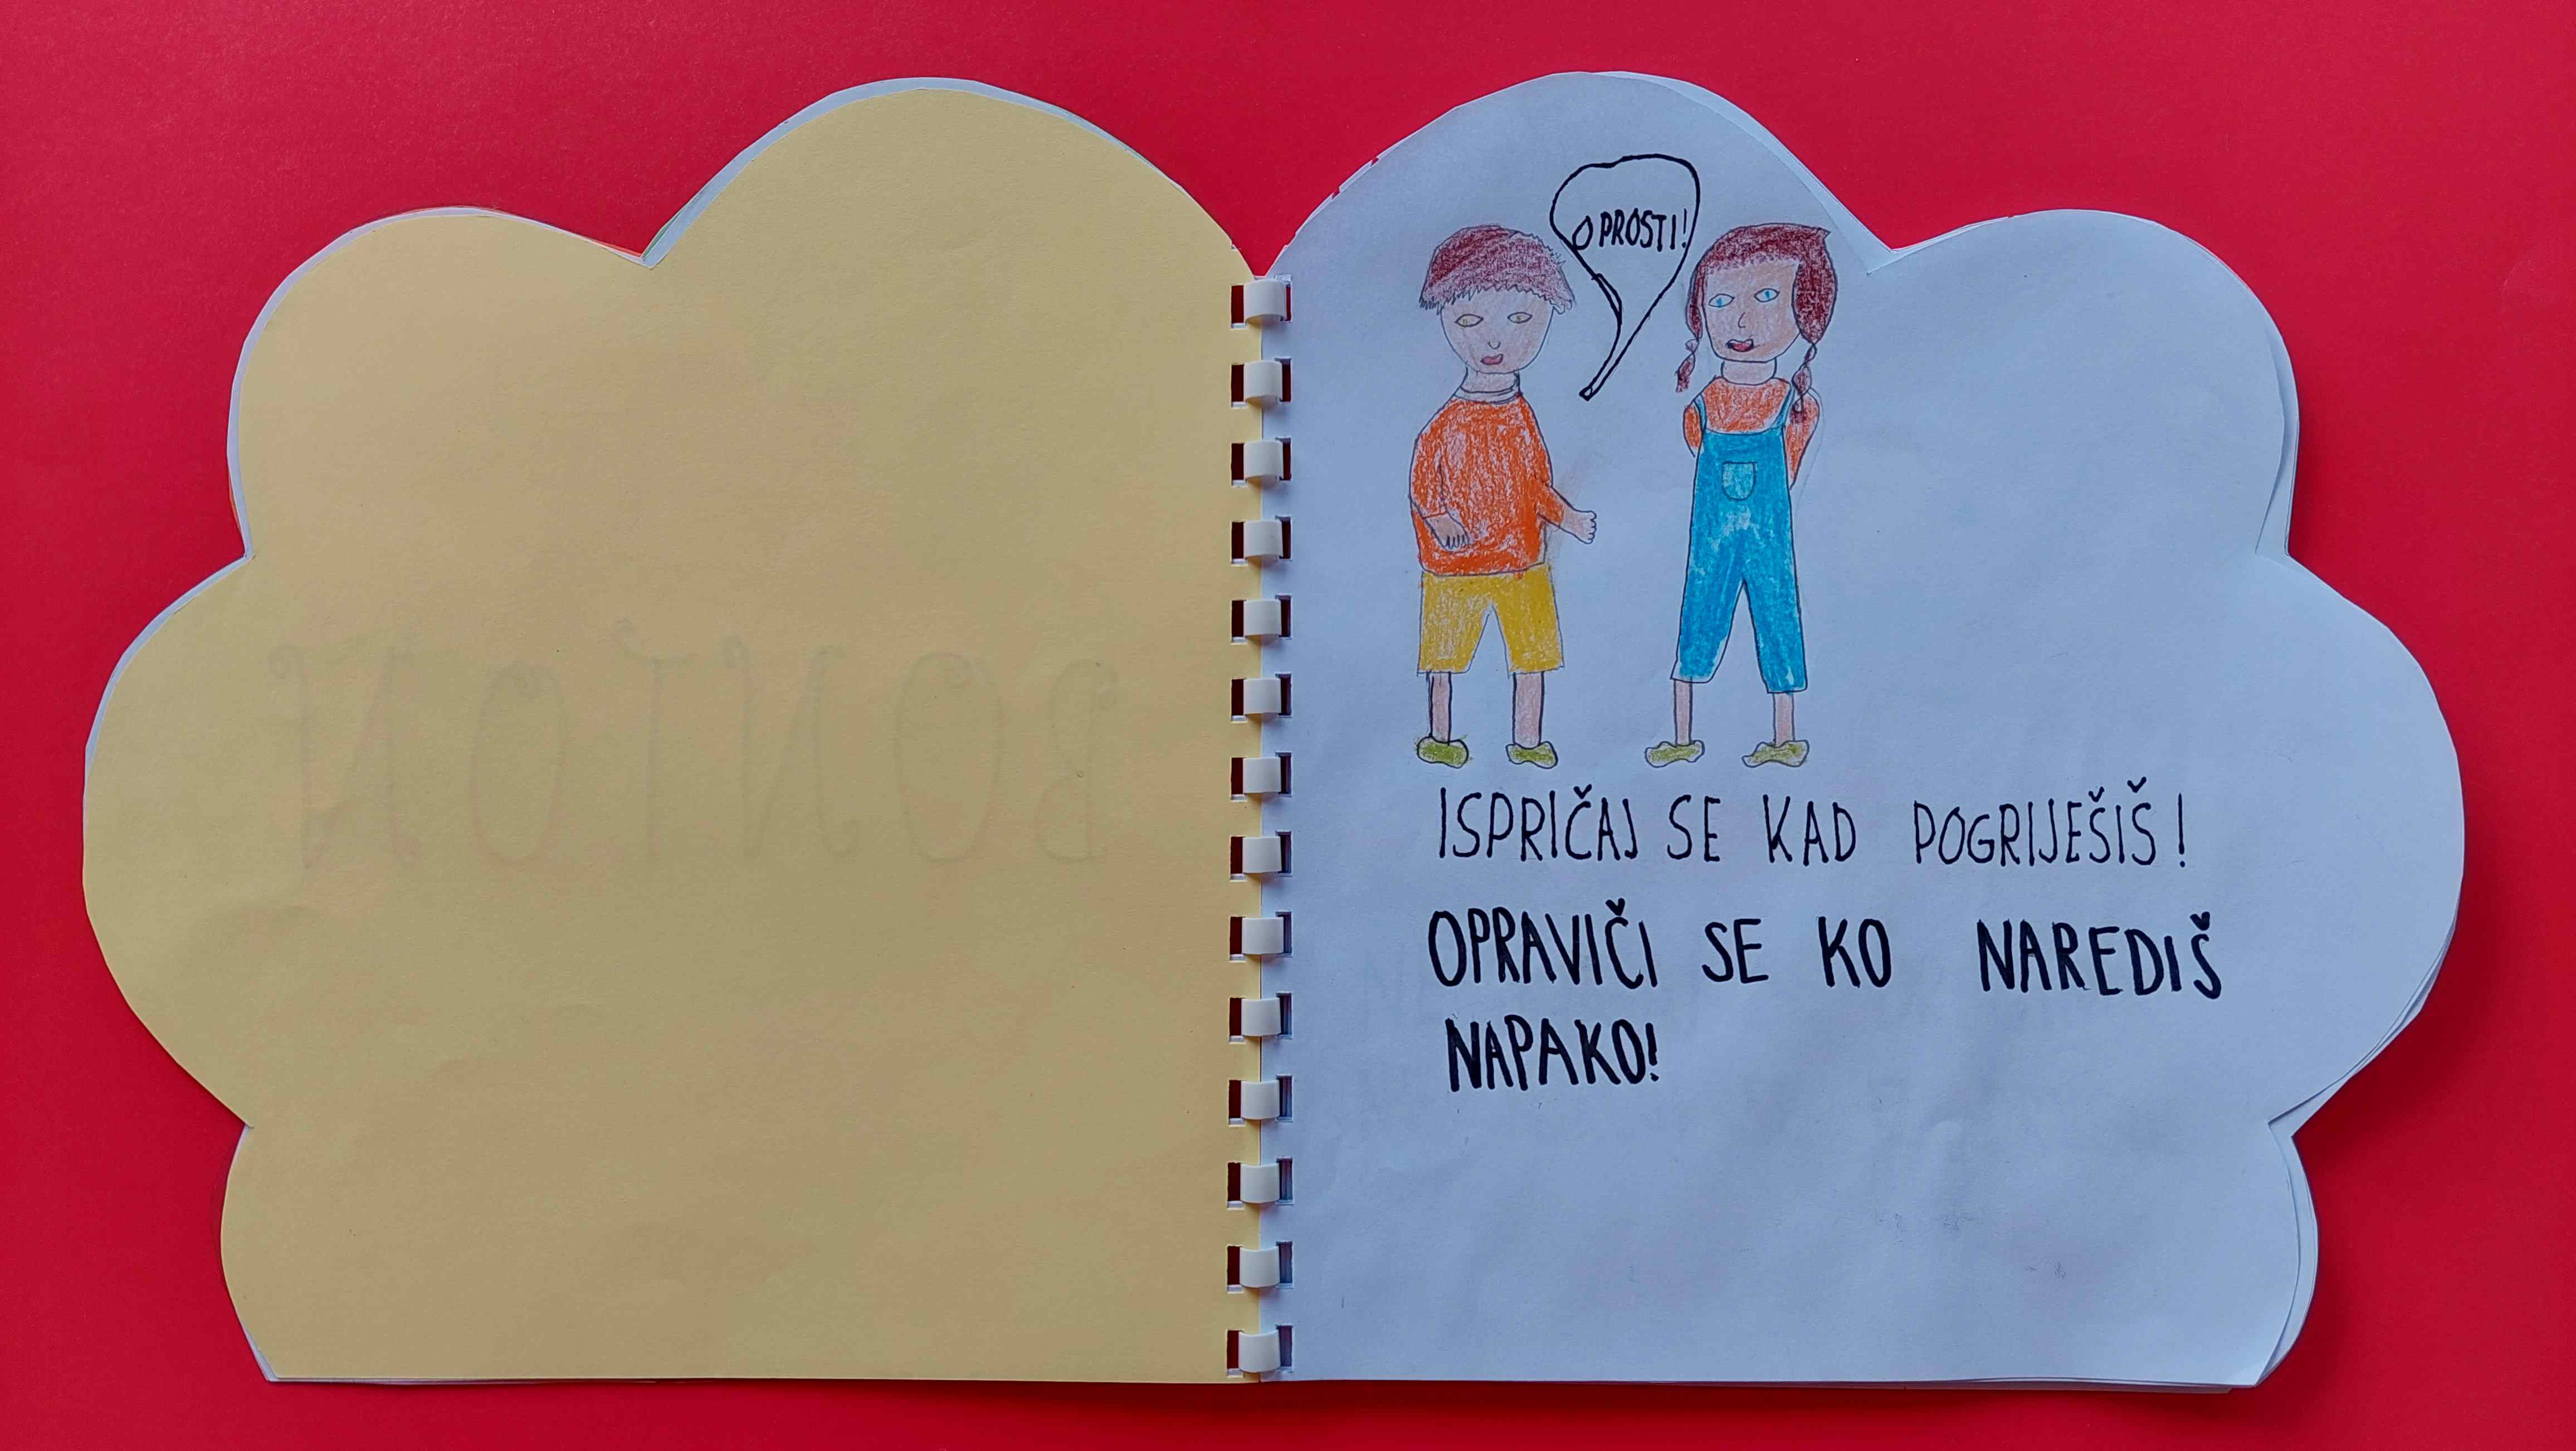 BONTON
OPROSTI!
ISPRIČAJ SE KAD POGRIJEŠIŠ!
OPRAVIČI SE KO NAREDIŠ
NAPAKO!